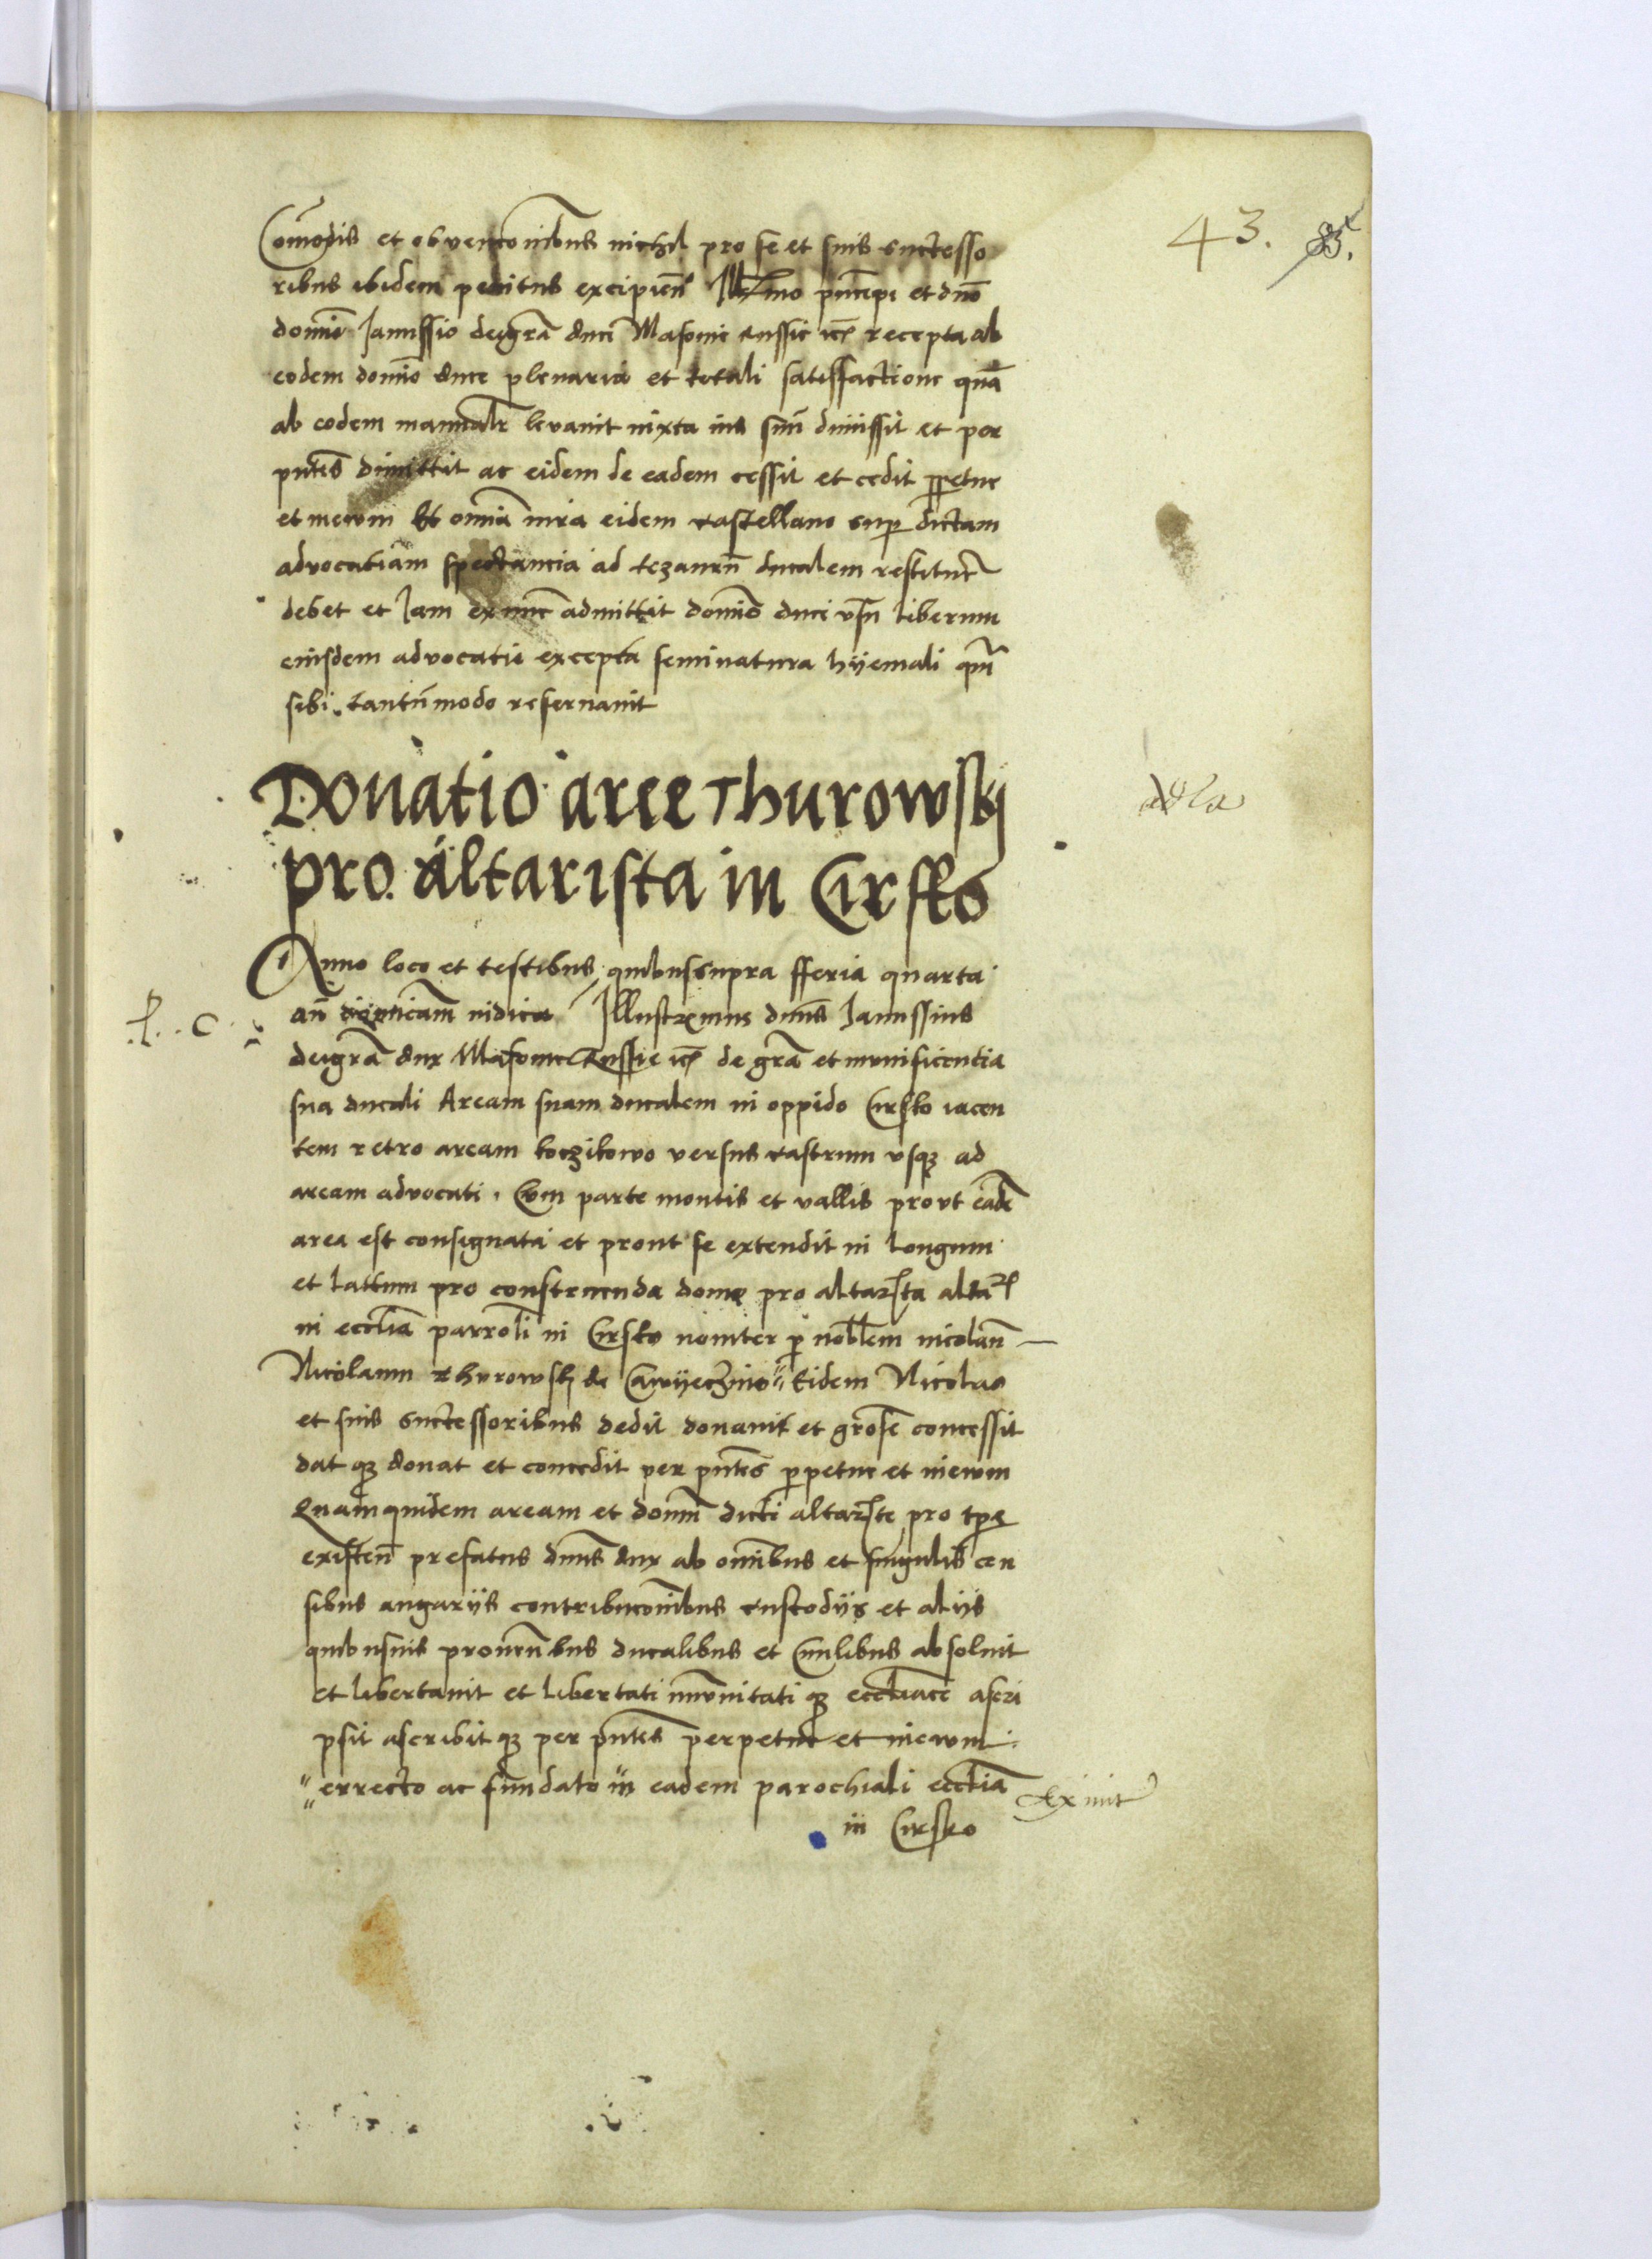 43. 85.
Com̃odis et obvenconibus nichil pro se et suis successo
ribus ibidem penitus excipien̄ Ill̃mo principi et dno
domino Janussio dei gr̃a duci Masovie Russie etc̃ recepta ab
eodem domino duce plenaria et totali satisfactione quã
ab eodem manualr̃ levavit iuxta ius suũ dimissit et per
pñtes dimittit ac eidem de eadem cessit et cedit ppetue
et in ewm Et omñia iura eidem castellano sup dictam
advocatiam spectancia ad tezaurũ ducalem restituer̃
debet et Jam ex nunc admittit domino duci vsũ liberum
eiusdem advocatie excepta seminatura hyemali qm̃
sibi tantũmodo reservavit
Donatio aree Thurowskj
pro altarista in Cirsko
adla
Anno loco et testibus quibus supra fferia quarta
an̄ dominicam iudica Illustrissimus dñus Janussius
dei gr̃a dux Masovie Russie etc̃ de gr̃a et munificentia
sua ducali Aream suam ducalem in oppido Cirsko iacen
tem retro aream koczikowo versus castrum vsq3 ad
aream advocati. Cum parte montis et vallis provt eadẽ
area est consignata et prout se extendit in longum
et lattum pro construenda domo pro altarista altar̃
in eccl̃ia parroli in Cirsko noviter p nobilem nicolaũ
Nicolaum Thurowskj de eidem Nicolao
et suis successoribus dedit donavit et grose concessit
dat q3 donat et concedit per pñtes ppetue et in ewm
Quamquidem aream et domũ dicti altariste pro tpe
existen̄ prefatus dñus dux ab omñibus et singulis cen
sibus angarijs contribuconibus custodijs et alijs
quibusuis proven̄bus ducalibus et Civilibus absoluit
et libertavit et libertati im̃unitati q3 eccl̃iace ascri
psit ascribit q3 per pñtes perpetue et in ewm
" errecto ac fundato in eadem parochiali eccl̃ia
in Cirsko
Ex nuit